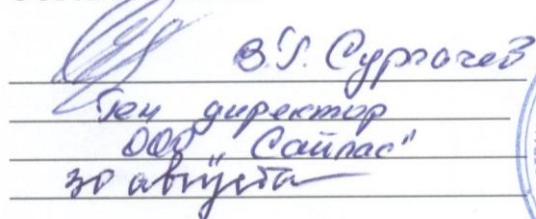 В.Г. Сургачев
Ген директор
ООО „Сайлас"
30 августа